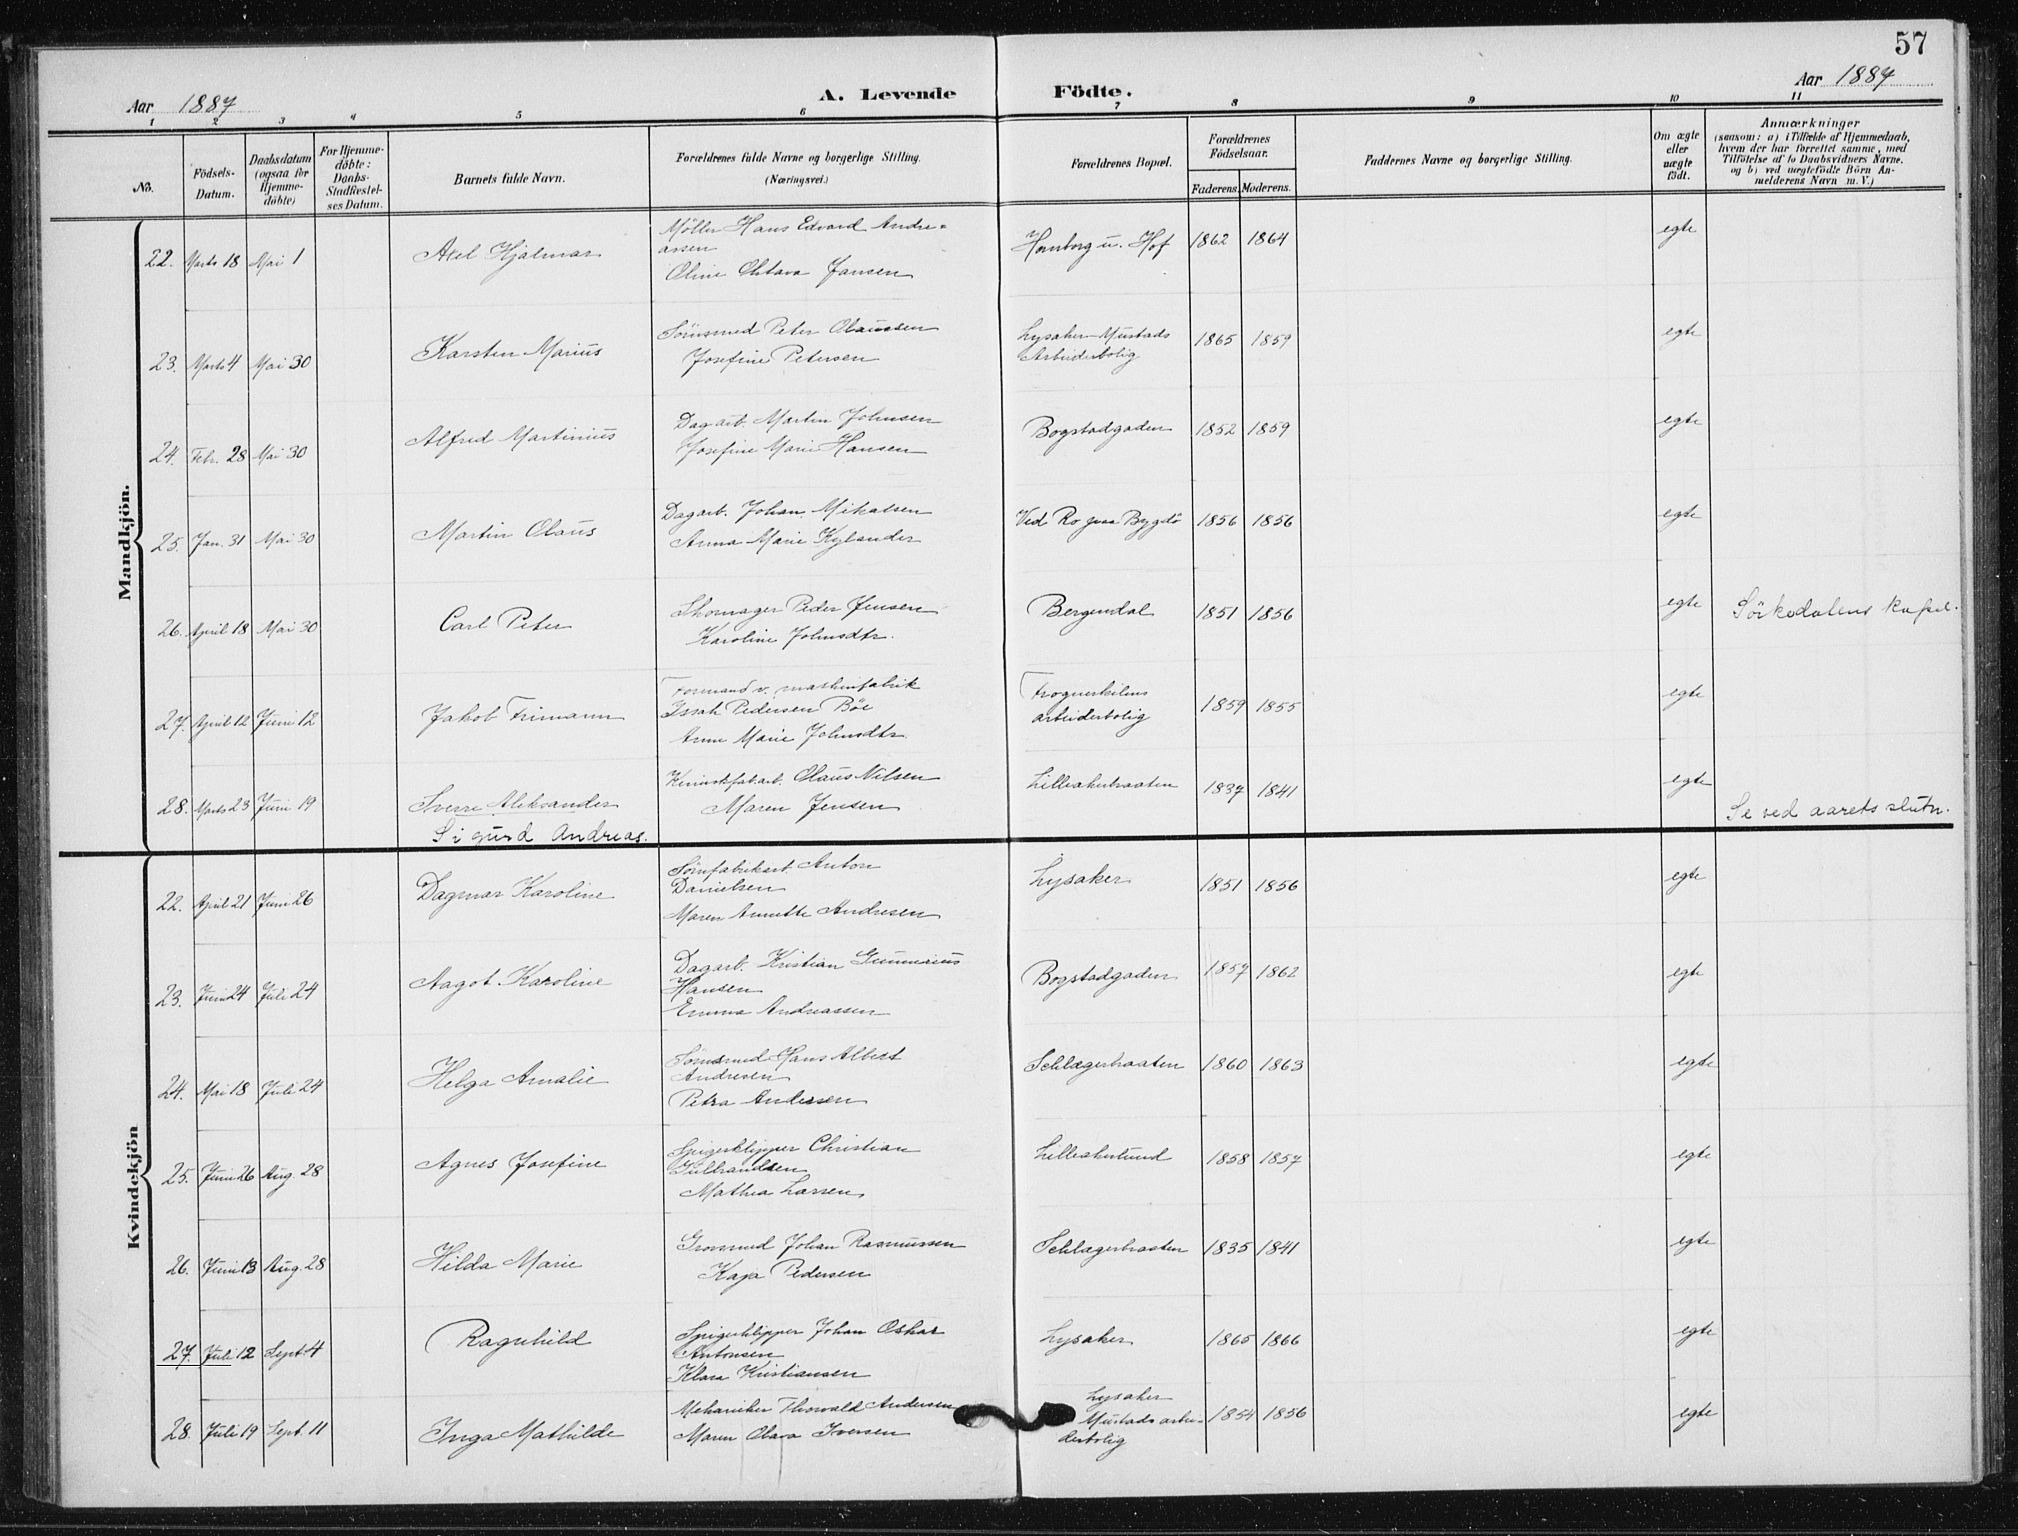 57
Aar 1887
A. Levende Födte.
Aar 1887
1 2 3 4 5 6 7 8 9 10 11
No.
Födsels-Datum.
Daabsdatum (ogsaa for Hjemme-döbte)
For Hjemme-döbte: Daabs-Stadfæstel-ses Datum.
Barnets fulde Navn.
Forældrenes fulde Navne og borgerlige Stilling.
(Næringsvei.)
Forældrenes Bopæl.
Forældrenes Födselsaar.
Faderens. Moderens.
Faddernes Navne og borgerlige Stilling.
Om ægte eller uægte födt.
Anmærkninger
(saasom: a) i Tilfælde af Hjemmedaab,
hvem der har forrettet samme, med
Tilföielse af to Daabsvidners Navne.
og b) ved uægtefödte Börn An-
melderens Navn m. V.)
Mandkjön.
22. Marts 18 Mai 1 Axel Hjalmar Møller Hans Edvard Andre=
assen
Oline Oktava Jansen Homborg u. Hof 1862 1864 egte
23. Marts 4 Mai 30 Karsten Marius Sömsmed Peter Olaussen
Josefine Petersen Lysaker-Mustads
Arbeiderbolig 1865 1859 egte
24. Febr. 28 Mai 30 Alfred Martinius Dagarb. Martin Johnsen
Josefine Marie Hansen Bogstadgaden 1852 1859 egte
25. Jan. 31 Mai 30 Martin Olaus Dagarb. Johan Mikalsen
Anna Marie Kylander Ved Ro paa Bygdö 1856 1856 egte
26. April 18 Mai 30 Carl Peter Skomager Peder Jensen
Karoline Johnsdtr. Bergendal 1851 1856 egte Sörkedalens kapel.
27. April 12 Juni 12 Jakob Frimann Formand v. maskinfabrik
Issak Pedersen Böe
Anne Marie Johnsdtr. Frognerkilens
arbeiderbolig 1859 1855 egte
28. Marts 23 Juni 19 Sverre Aleksander
Sigurd Andreas. Kemiskfab.arb. Olaus Nilsen
Maren Jensen Lilleakerbraaten 1837 1841 egte Se ved aarets slutn.
Kvindekjön
22. April 21 Juni 26 Dagmar Karoline Sömfabrikarb. Anton
Danielsen
Maren Annette Andresen Lysaker 1851 1856 egte
23. Juni 24 Juli 24 Aagot Karoline Dagarb. Kristian Gunnerius
Hansen
Emma Andreassen Bogstadgaden 1857 1862 egte
24. Mai 18 Juli 24 Helga Amalie Sömsmed Hans Albert
Andresen
Petra Andersen Schlagerbraaten 1860 1863 egte
25. Juni 26 Aug. 28 Agnes Josefine Spigerklipper Christian
Gulbrandsen
Mathea Larsen Lilleakerlund 1858 1857 egte
26. Juni 13 Aug. 28 Hilda Marie Grovsmed Johan Rasmussen
Kaja Pedersen Schlagerbraaten 1835 1841 egte
27. Juli 12 Sept. 4 Ragnhild Spigerklipper Johan Oskar
Antonsen
Klara Kristiansen Lysaker 1865 1866 egte
28. Juli 19 Sept. 11 Inga Mathilde Mekaniker Thorvald Andersen
Maren Olava Iversen Lysaker
Mustads arbei-
derbolig 1854 1856 egte